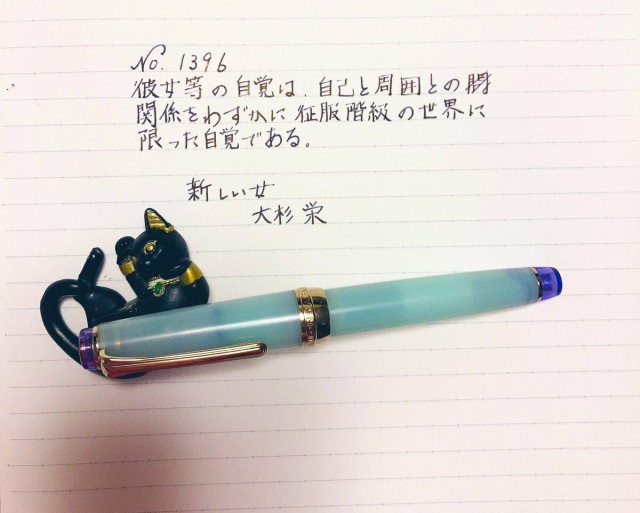 No. 1396
彼女等の自覚は、自己と周囲との関
関係をわずかに征服階級の世界に
限った自覚である。
新しい女
大杉 栄